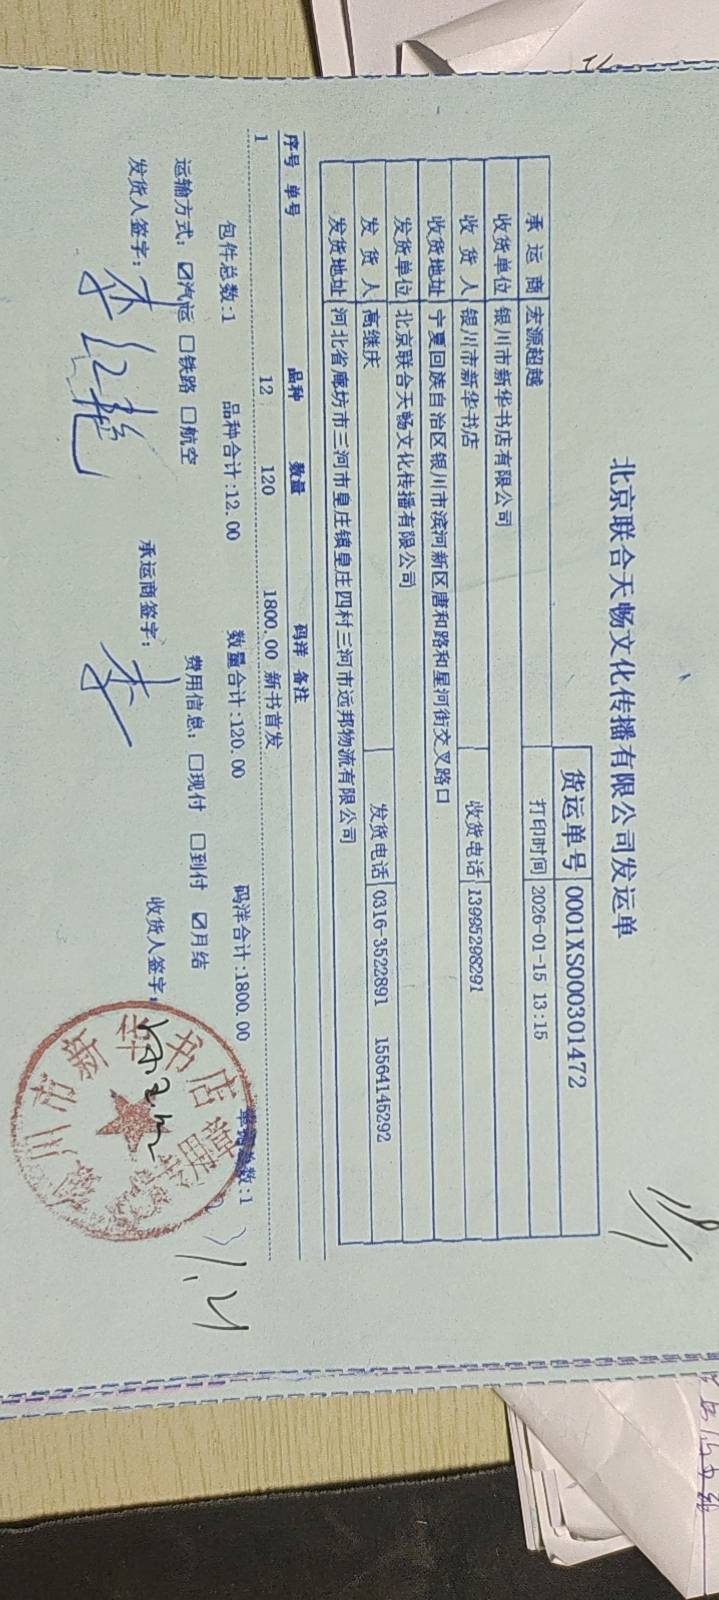 北京联合天畅文化传播有限公司发运单
货运单号 0001XS000301472
承运商 宏源超越 打印时间 2026-01-15 13:15
收货单位 银川市新华书店有限公司
收货人 银川市新华书店 收货电话 13995298291
收货地址 宁夏回族自治区银川市滨河新区唐和路和星河街交叉路口
发货单位 北京联合天畅文化传播有限公司
发货人 高继庆 发货电话 0316-3522891 15564145292
发货地址 河北省廊坊市三河市皇庄镇皇庄四村三河市远邦物流有限公司
序号 单号 品种 数量 码洋 备注
1 12 120 1800.00 新书首发
包件总数:1 品种合计:12.00 数量合计:120.00 码洋合计:1800.00 单据总数:1
运输方式: ☑汽运 □铁路 □航空 费用信息: □现付 □到付 ☑月结
发货人签字: 李红艳 承运商签字: 李 收货人签字:
银川市新华书店
专用章